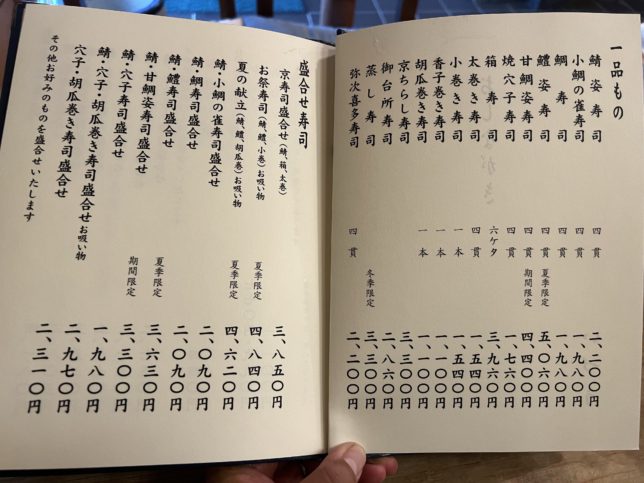 一品もの
鯖姿寿司 四貫 二、二〇〇円
小鯛の雀寿司 四貫 一、九八〇円
鯛寿司 四貫 一、九八〇円
鱧姿寿司 四貫 夏季限定 五、〇六〇円
甘鯛姿寿司 四貫 期間限定 四、四〇〇円
焼穴子寿司 四貫 一、七六〇円
箱寿司 六ケタ 三、九六〇円
太巻き寿司 四貫 一、五四〇円
小巻き寿司 一本 一、五四〇円
香子巻き寿司 一本 一、一〇〇円
胡瓜巻き寿司 一本 一、一〇〇円
京ちらし寿司 三、三〇〇円
御台所寿司 二、八六〇円
蒸し寿司 冬季限定 三、三〇〇円
弥次喜多寿司 四貫 二、二〇〇円
盛合せ寿司
京寿司盛合せ（鯖、箱、太巻） 三、八五〇円
お祭寿司（鯖、鱧、小巻）お吸い物 夏季限定 四、八四〇円
夏の献立（鯖、鱧、胡瓜巻）お吸い物 夏季限定 四、六二〇円
鯖・小鯛の雀寿司盛合せ 二、〇九〇円
鯖・鯛寿司盛合せ 二、〇九〇円
鯖・鱧寿司盛合せ 夏季限定 三、六三〇円
鯖・甘鯛姿寿司盛合せ 期間限定 三、三〇〇円
鯖・穴子寿司盛合せ 一、九八〇円
鯖・穴子・胡瓜巻き寿司盛合せお吸い物 二、九七〇円
穴子・胡瓜巻き寿司盛合せ 二、三一〇円
その他お好みのものを盛合せいたします